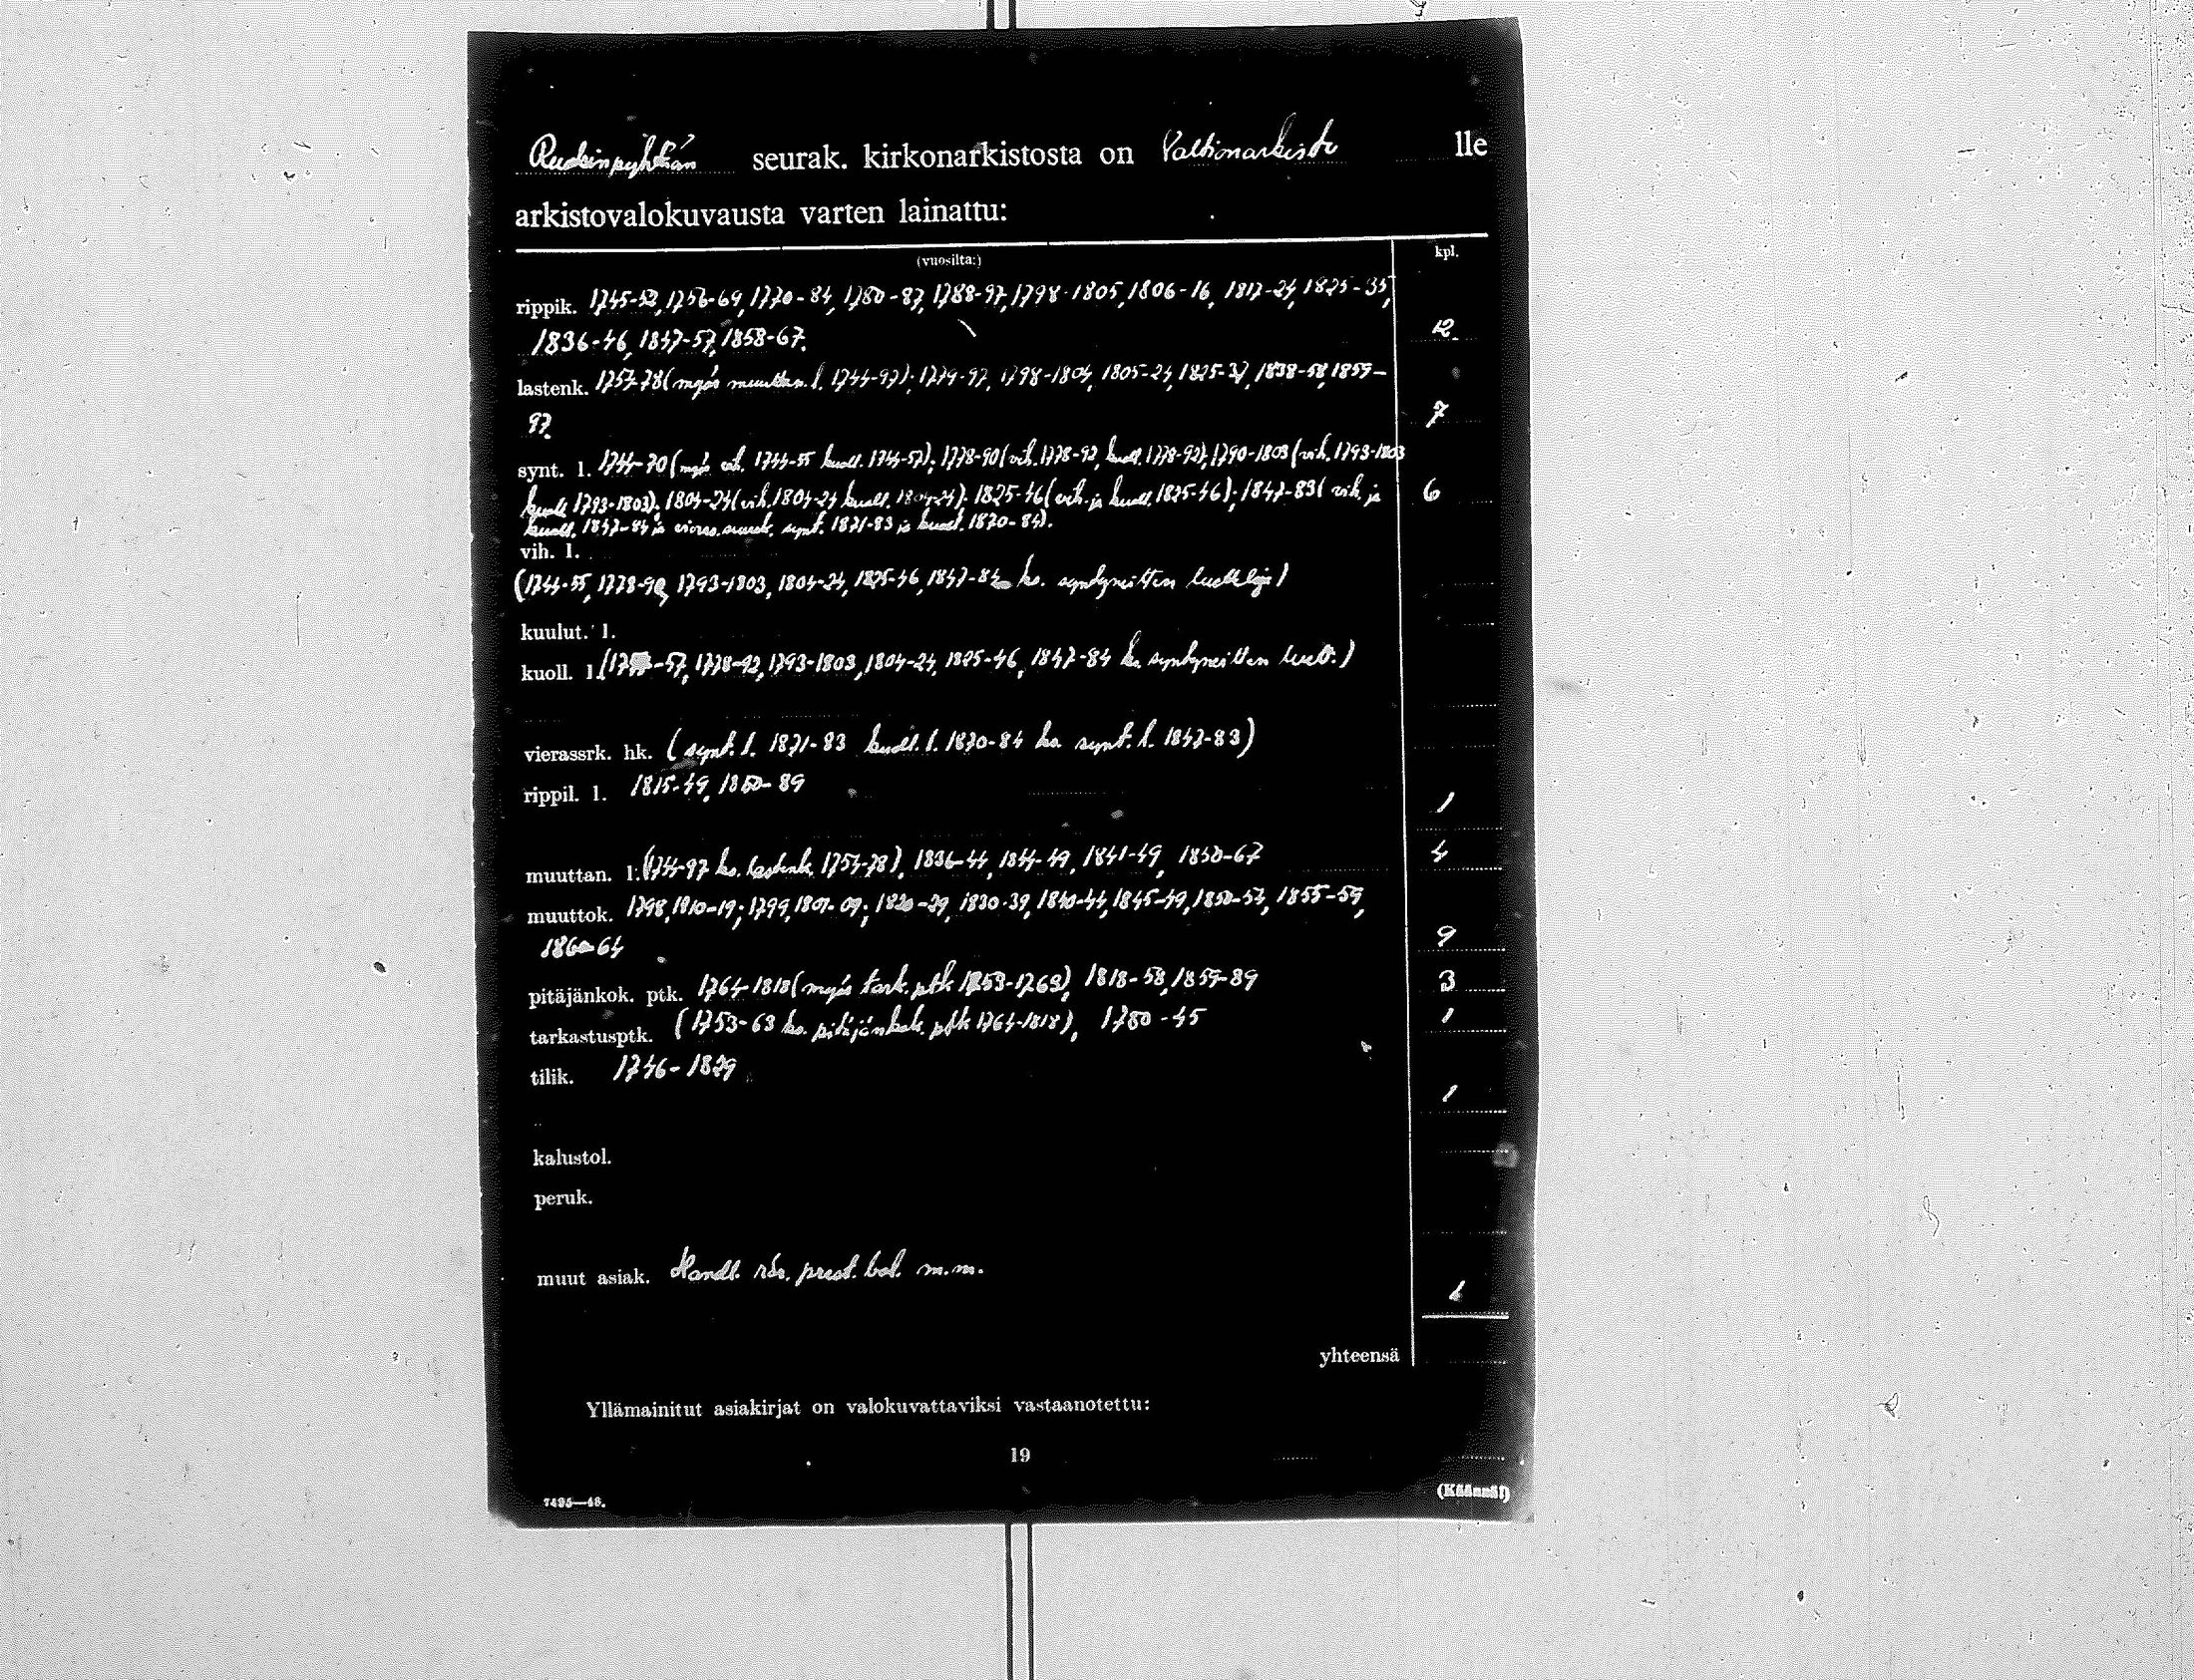 Ruotsinpyhtään seurak. kirkonarkistosta on Valtionarkisto lle
arkistovalokuvausta varten lainattu:
(vuosilta:) kpl.
rippik. 1745-52, 1756-69, 1770-84, 1780-87, 1788-97, 1798-1805, 1806-16, 1817-24, 1825-35,
1836-46, 1847-57, 1858-67. 12
lastenk. 1757-78 (myös muuttan. l. 1744-97); 1779-97, 1798-1804, 1805-24, 1825-37, 1838-58, 1859-
97. 7
synt. l. 1744-70 (myös vih. 1744-55 kuoll. 1744-57); 1778-90 (vih. 1778-92, kuoll. 1778-92), 1790-1803 (vih. 1793-1803
kuoll. 1793-1803); 1804-24 (vih. 1804-24 kuoll. 1804-24); 1825-46 (vih. ja kuoll. 1825-46); 1847-83 (vih. ja 6
kuoll. 1847-84 ja vieras. seurak. synt. 1871-83 ja kuoll. 1870-84).
vih. l.
(1744-55, 1778-92, 1793-1803, 1804-24, 1825-46, 1847-84 ks. syntyneitten luetteloja)
kuulut. l.
kuoll. l. ( -57, 1778-92, 1793-1803, 1804-24, 1825-46, 1847-84 ks. syntyneitten luett.)
vierassrk. hk. (synt. l. 1871-83 kuoll. l. 1870-84 ks. synt. l. 1847-83)
rippil. l. 1815-49, 1850-89 1
muuttan. l. (1744-97 ks. lastenk. 1757-78), 1836-44, 1844-49, 1841-49, 1850-67 4
muuttok. 1798, 1810-19; 1799, 1801-09; 1820-29, 1830-39, 1840-44, 1845-49, 1850-54, 1855-59,
1860-64 9
pitäjänkok. ptk. 1764-1818 (myös tark. ptk 1753-1763), 1818-58, 1859-89 3
tarkastusptk. (1753-63 ks. pitäjänkok. ptk 1764-1818), 1780-45 1
tilik. 1746-1829 1
kalustol.
peruk.
muut asiak. Handl. rör. prest. bol. m.m. 1
yhteensä
Yllämainitut asiakirjat on valokuvattaviksi vastaanotettu:
19
7495—48. (Käännä!)